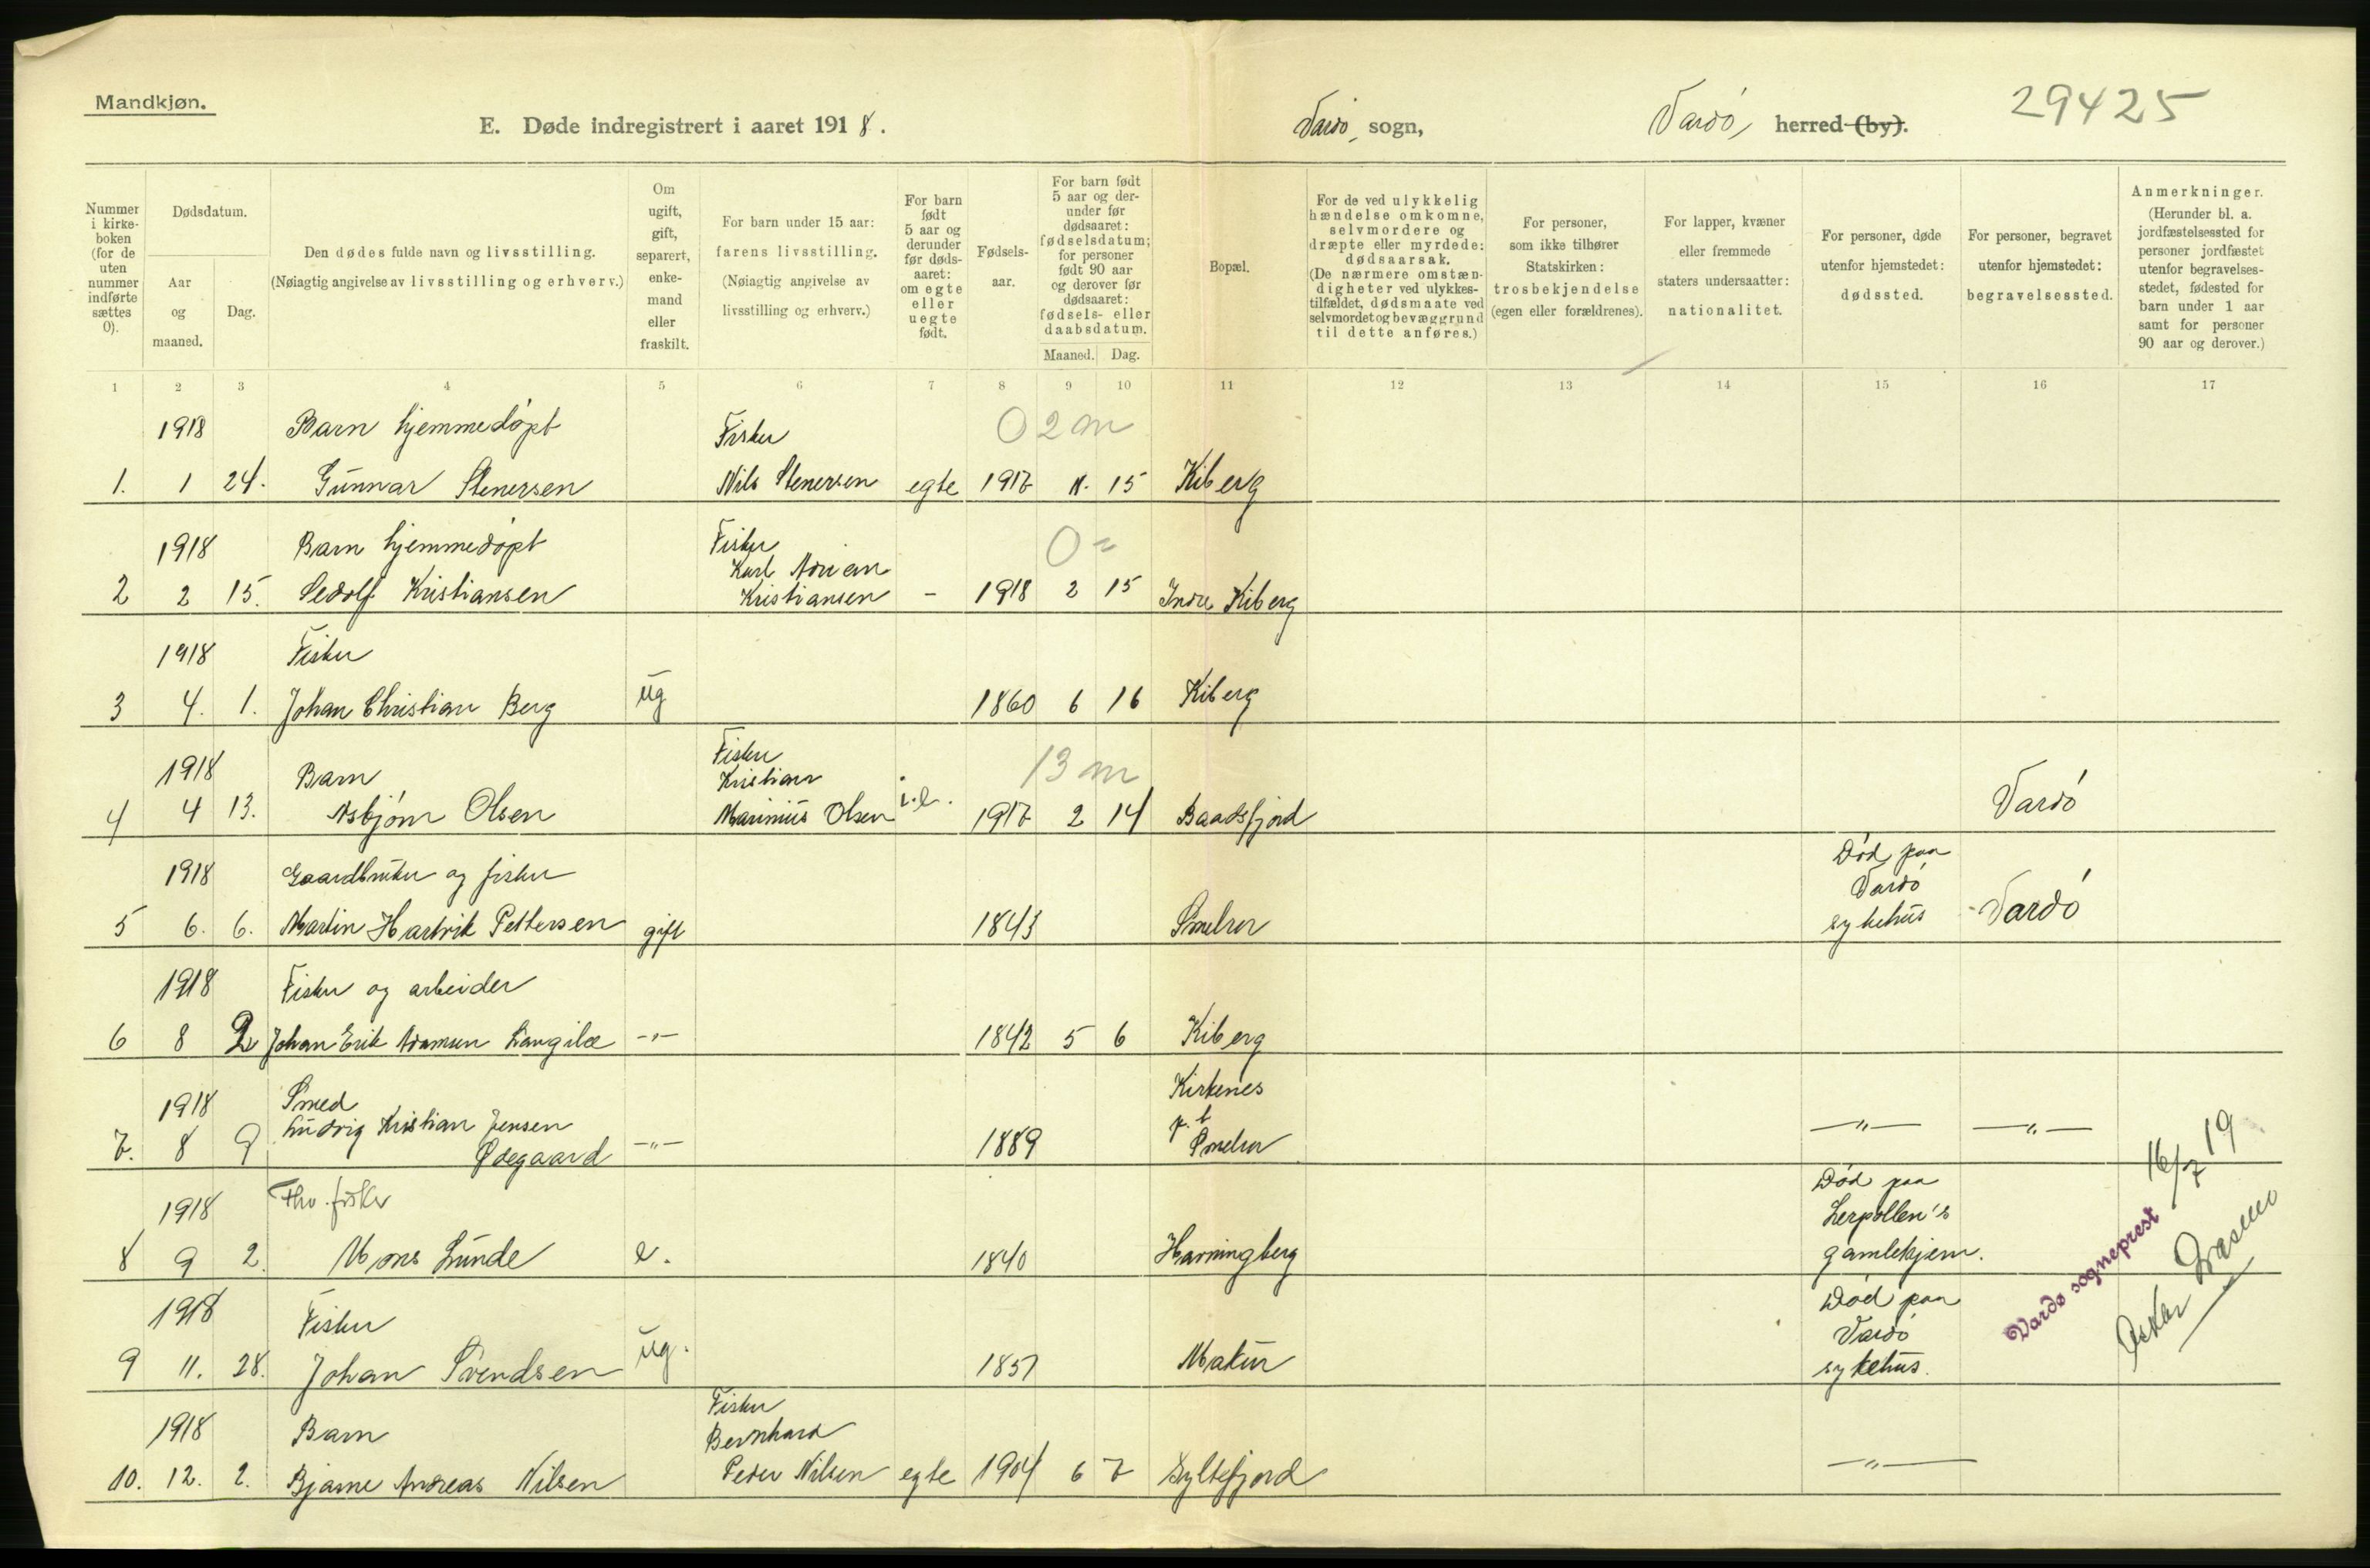 Mandkjøn.
E. Døde indregistrert i aaret 1918.
Vardø sogn,
Vardø herred (by).
29425
Nummer i kirke-boken (for de uten nummer indførte sættes 0).
Dødsdatum.
Aar og maaned.
Dag.
Den dødes fulde navn og livsstilling.
(Nøiagtig angivelse av livsstilling og erhverv.)
Om ugift, gift, separert, enke-mand eller fraskilt.
For barn under 15 aar: farens livsstilling.
(Nøiagtig angivelse av livsstilling og erhverv.)
For barn født 5 aar og derunder før døds-aaret: om egte eller uegte født.
Fødsels-aar.
For barn født 5 aar og der-under før dødsaaret: fødselsdatum; for personer født 90 aar og derover før dødsaaret: fødsels- eller daabsdatum.
Maaned.
Dag.
Bopæl.
For de ved ulykkelig hændelse omkomne, selvmordere og dræpte eller myrdede: dødsaarsak.
(De nærmere omstæn-digheter ved ulykkes-tilfældet, dødsmaate ved selvmordet og bevæggrund til dette anføres.)
For personer, som ikke tilhører Statskirken: trosbekjendelse (egen eller forældrenes).
For lapper, kvæner eller fremmede staters undersaatter: nationalitet.
For personer, døde utenfor hjemstedet: dødssted.
For personer, begravet utenfor hjemstedet: begravelsessted.
Anmerkninger.
(Herunder bl. a. jordfæstelsessted for personer jordfæstet utenfor begravelses-stedet, fødested for barn under 1 aar samt for personer 90 aar og derover.)
1 2 3 4 5 6 7 8 9 10 11 12 13 14 15 16 17
1918 Barn hjemmedøpt Fisker 0 2 m
1. 1 24. Gunnar Stenersen Nils Stenersen egte 1917 11. 15 Kiberg
1918 Barn hjemmedøpt Fisker 0
Karl Adrian
2 2 15. Sedolf Kristiansen Kristiansen - 1918 2 15 Indre Kiberg
1918 Fisker
3 4. 1. Johan Christian Berg ug 1860 6 16 Kiberg
Fisker
1918 Barn Kristian 13 m
4 4 13. Asbjørn Olsen Marinius Olsen 1917 2 14 Baadsfjord Vardø
1918 Gaardbruker og fisker Død paa Vardø
5 6. 6. Martin Hartvik Pettersen gift 1843 Smelror sykehus Vardø
1918 Fisker og arbeider
6 8 2 Johan Erik Adamsen -"- 1842 5 6 Kiberg
1918 Smed Kirkenes
Ludvig Kristian Jensen p.t.
7. 8 9 Ødegaard -"- 1889 Smelror -"- -"-
1918 Fhv. fisker Død paa Lerpollen's
8 9 2. Mons Lunde e. 1840 Havningberg gamlehjem.
1918 Fisker Død paa Vardø
9 11. 28. Johan Svendsen ug. 1857 Makur sykehus.
Fisker
1918 Barn Bernhard
10. 12. 2. Bjarne Andreas Nilsen Peder Nilsen egte 1904 6 7 Syltefjord -"-
16/7 19
Vardø sogneprest
Oskar